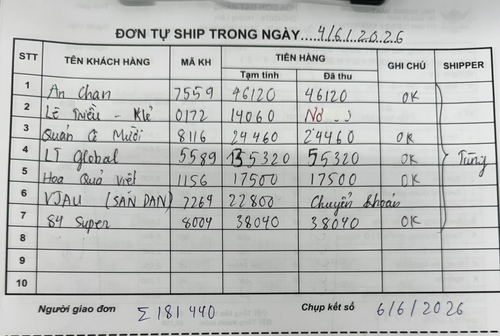 ĐƠN TỰ SHIP TRONG NGÀY....4/6/.2.0.26
STT TÊN KHÁCH HÀNG MÃ KH TIỀN HÀNG GHI CHÚ SHIPPER
Tạm tính Đã thu
1 An Chan 7559 46120 46120 OK
2 Lê Triều - Khế 0172 14060 Nợ
3 Quán Cô Mười 8116 24460 24460 OK
4 LT Global 5589 55320 55320 OK Tùng
5 Hoa Quả Việt 1156 17500 17500 OK
6 VJAU (SAN DAN) 7269 22800 Chuyển khoản
7 84 Super 8004 38040 38040 OK
8
9
10
Người giao đơn Σ 181 440 Chụp kết sổ 6/6/2026